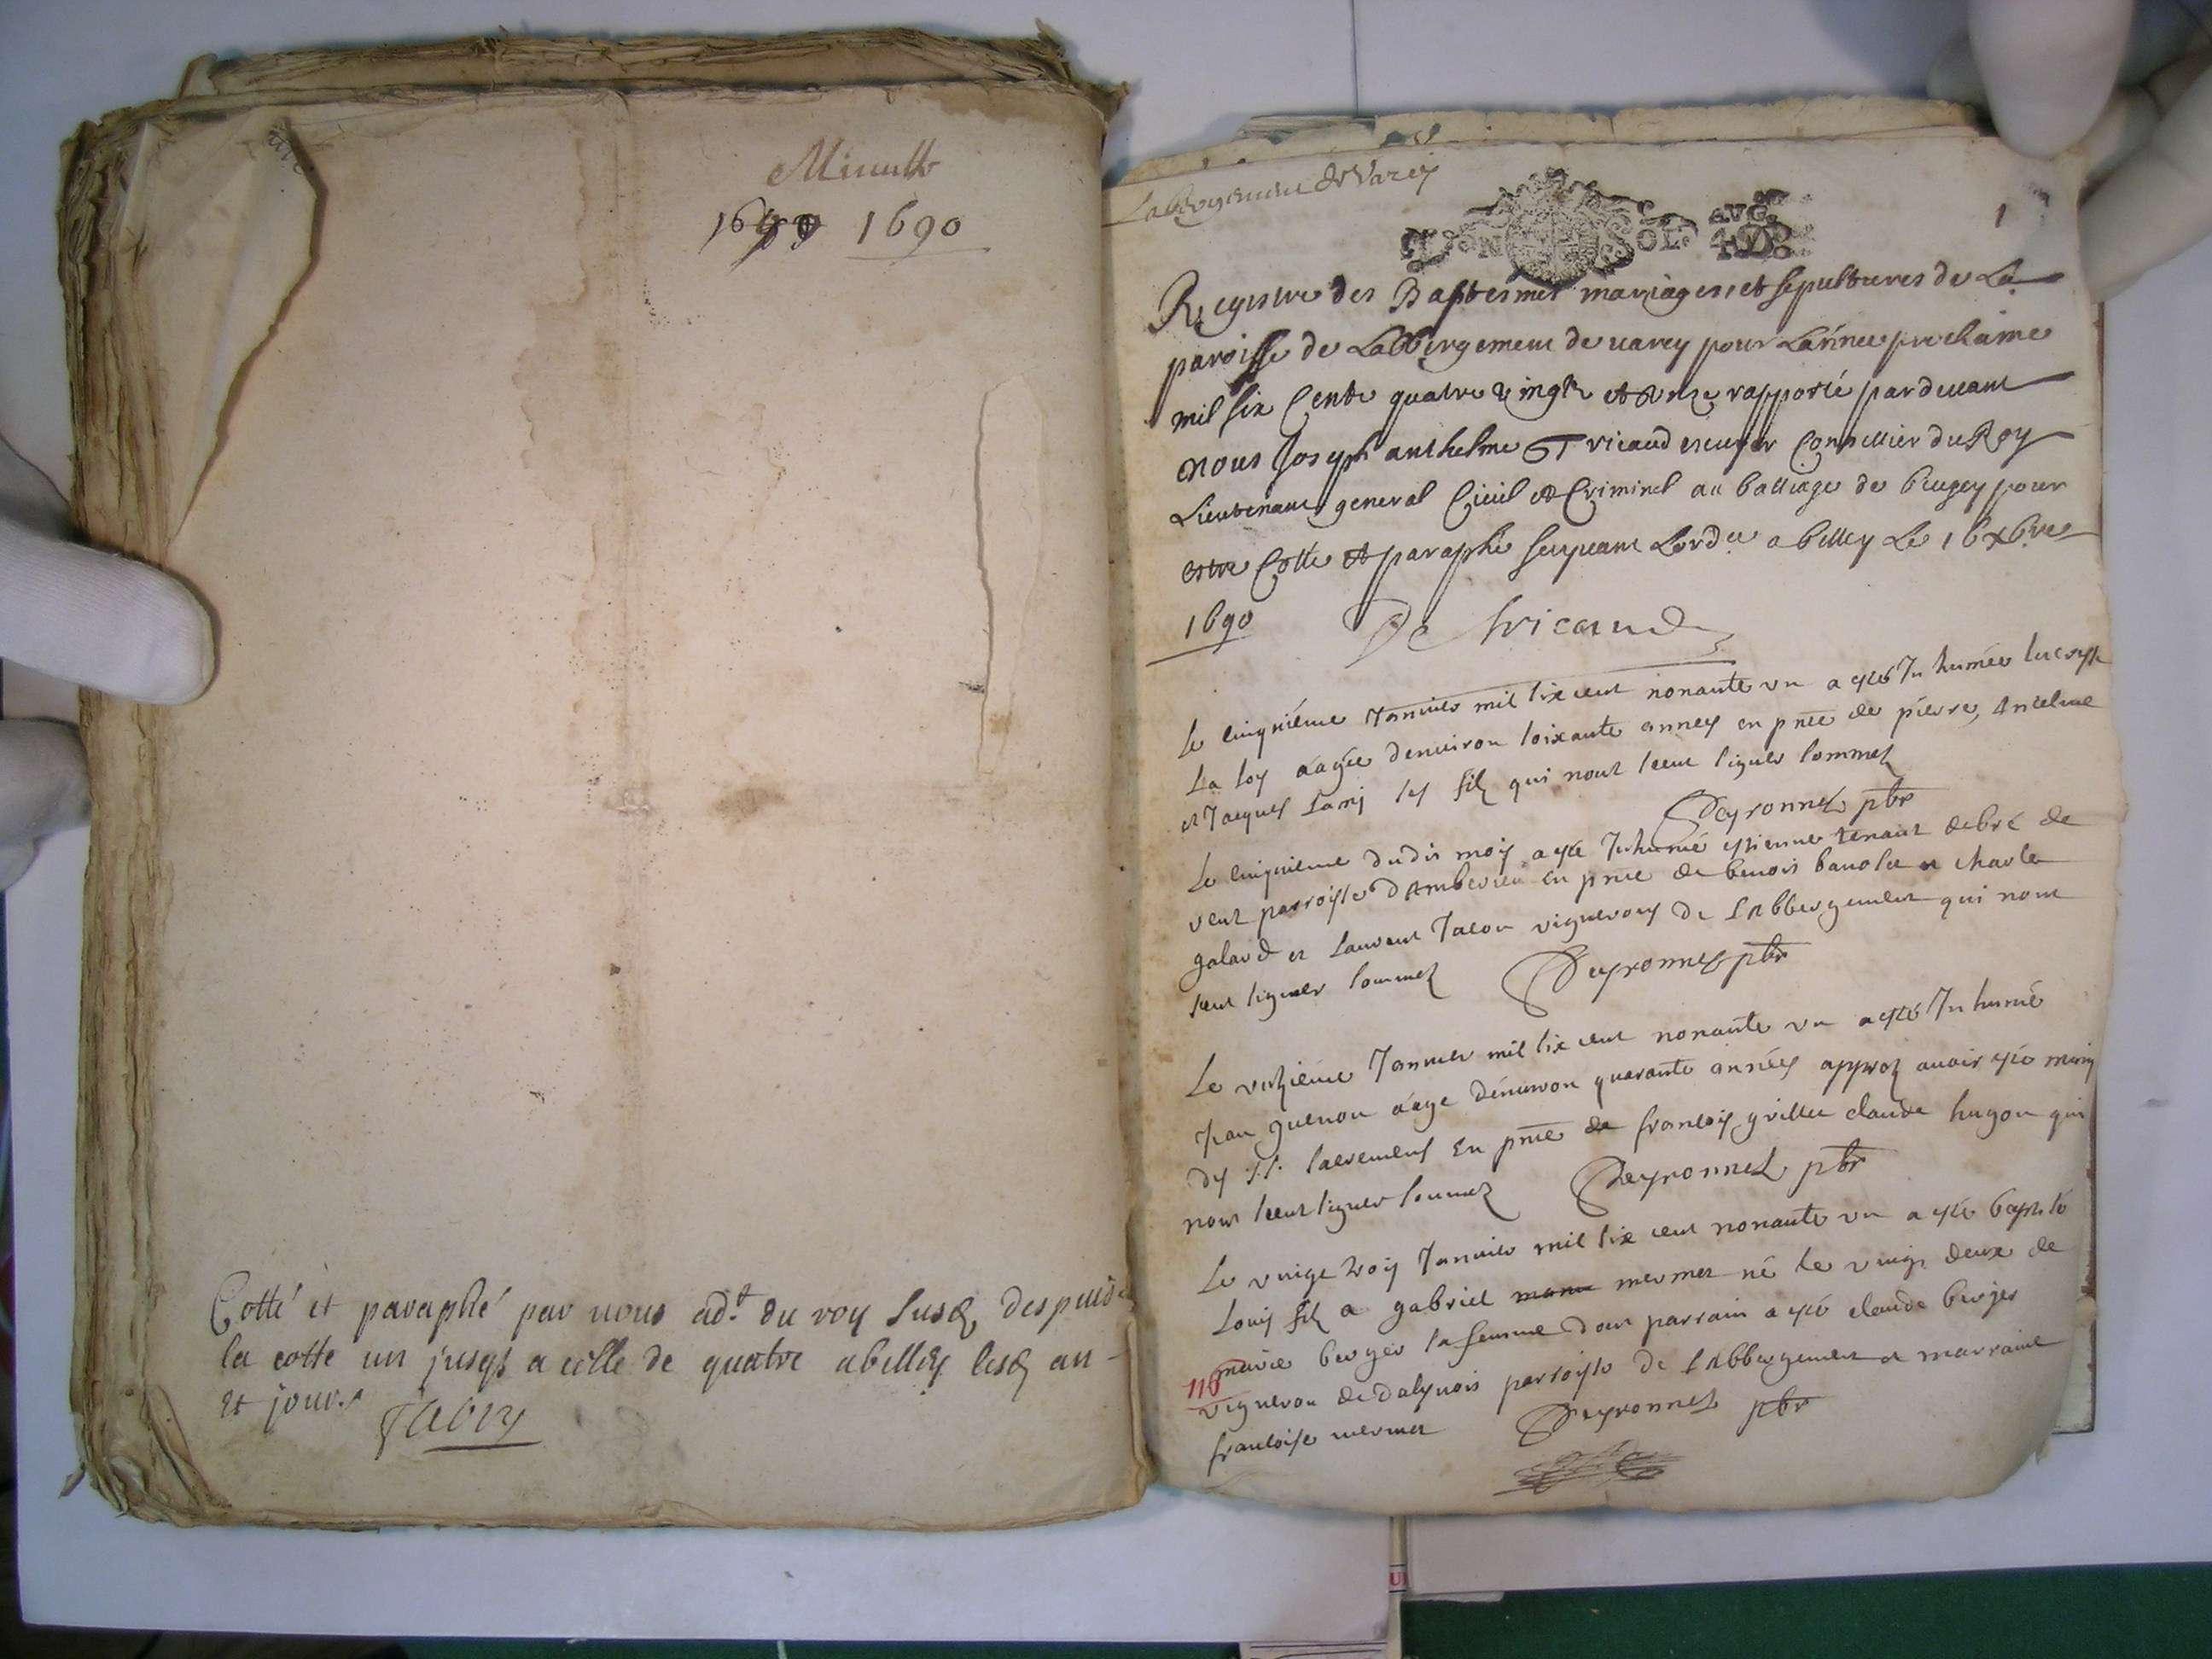 Minutte
1689 1690
Cotté et paraphé par nous ad.t du roy susd. despuis
la cotte un jusqs a celle de quatre abelley lesd. an
et jour.s
Labbergement de Varey
1
AVG.
SOL.
Registre des Baptesmes mariages, et sepultures de La
paroisse de Labbergement de varey pour Lannee prochaine
mil six Cents quatre vingts et onze rapporté pardevant
nous Joseph anthelme Tricaud escuyer Conseillier du Roy
Lieutenant general Civil et Criminel au balliage de beugey pour
estre Cotté et paraphé suyvant Lord.ce a belley Le 16 xbre
1690
De tricaud
Le cinquiéme Janvier mil six cent nonante un a esté Inhumée
La loy aagée denviron soixante annes en pnce de pierre, Antelme
et Jacques Lamy ses fils qui nont sceut signer sommes
Deyronnel pbr
Le cinquieme dudit mois a esté Inhumé estienne tenant de
vent parroisse dAmberieu en pnce de benoit et charle
galard et Laurent Jacou vignerons de LAbbergement qui nont
sceut signer sommes Deyronnel pbr
Le Janvier mil six cent nonante un a esté Inhumé
Jean guenon aagé denviron quarante années apprez avoir esté muny
des S.S. sacrements En pnce de francois grillet claude hugon qui
nont sceut signer sommes Deyronnel pbr
Le vingt trois Janvier mil six cent nonante un a esté baptisé
Louis fils a gabriel mermet né le vingt deux de
marie berger sa femme dont parrain a esté claude berger
116
vigneron de dalivois parroisse de LAbbergement et marraine
francoise mermet Deyronnel pbr